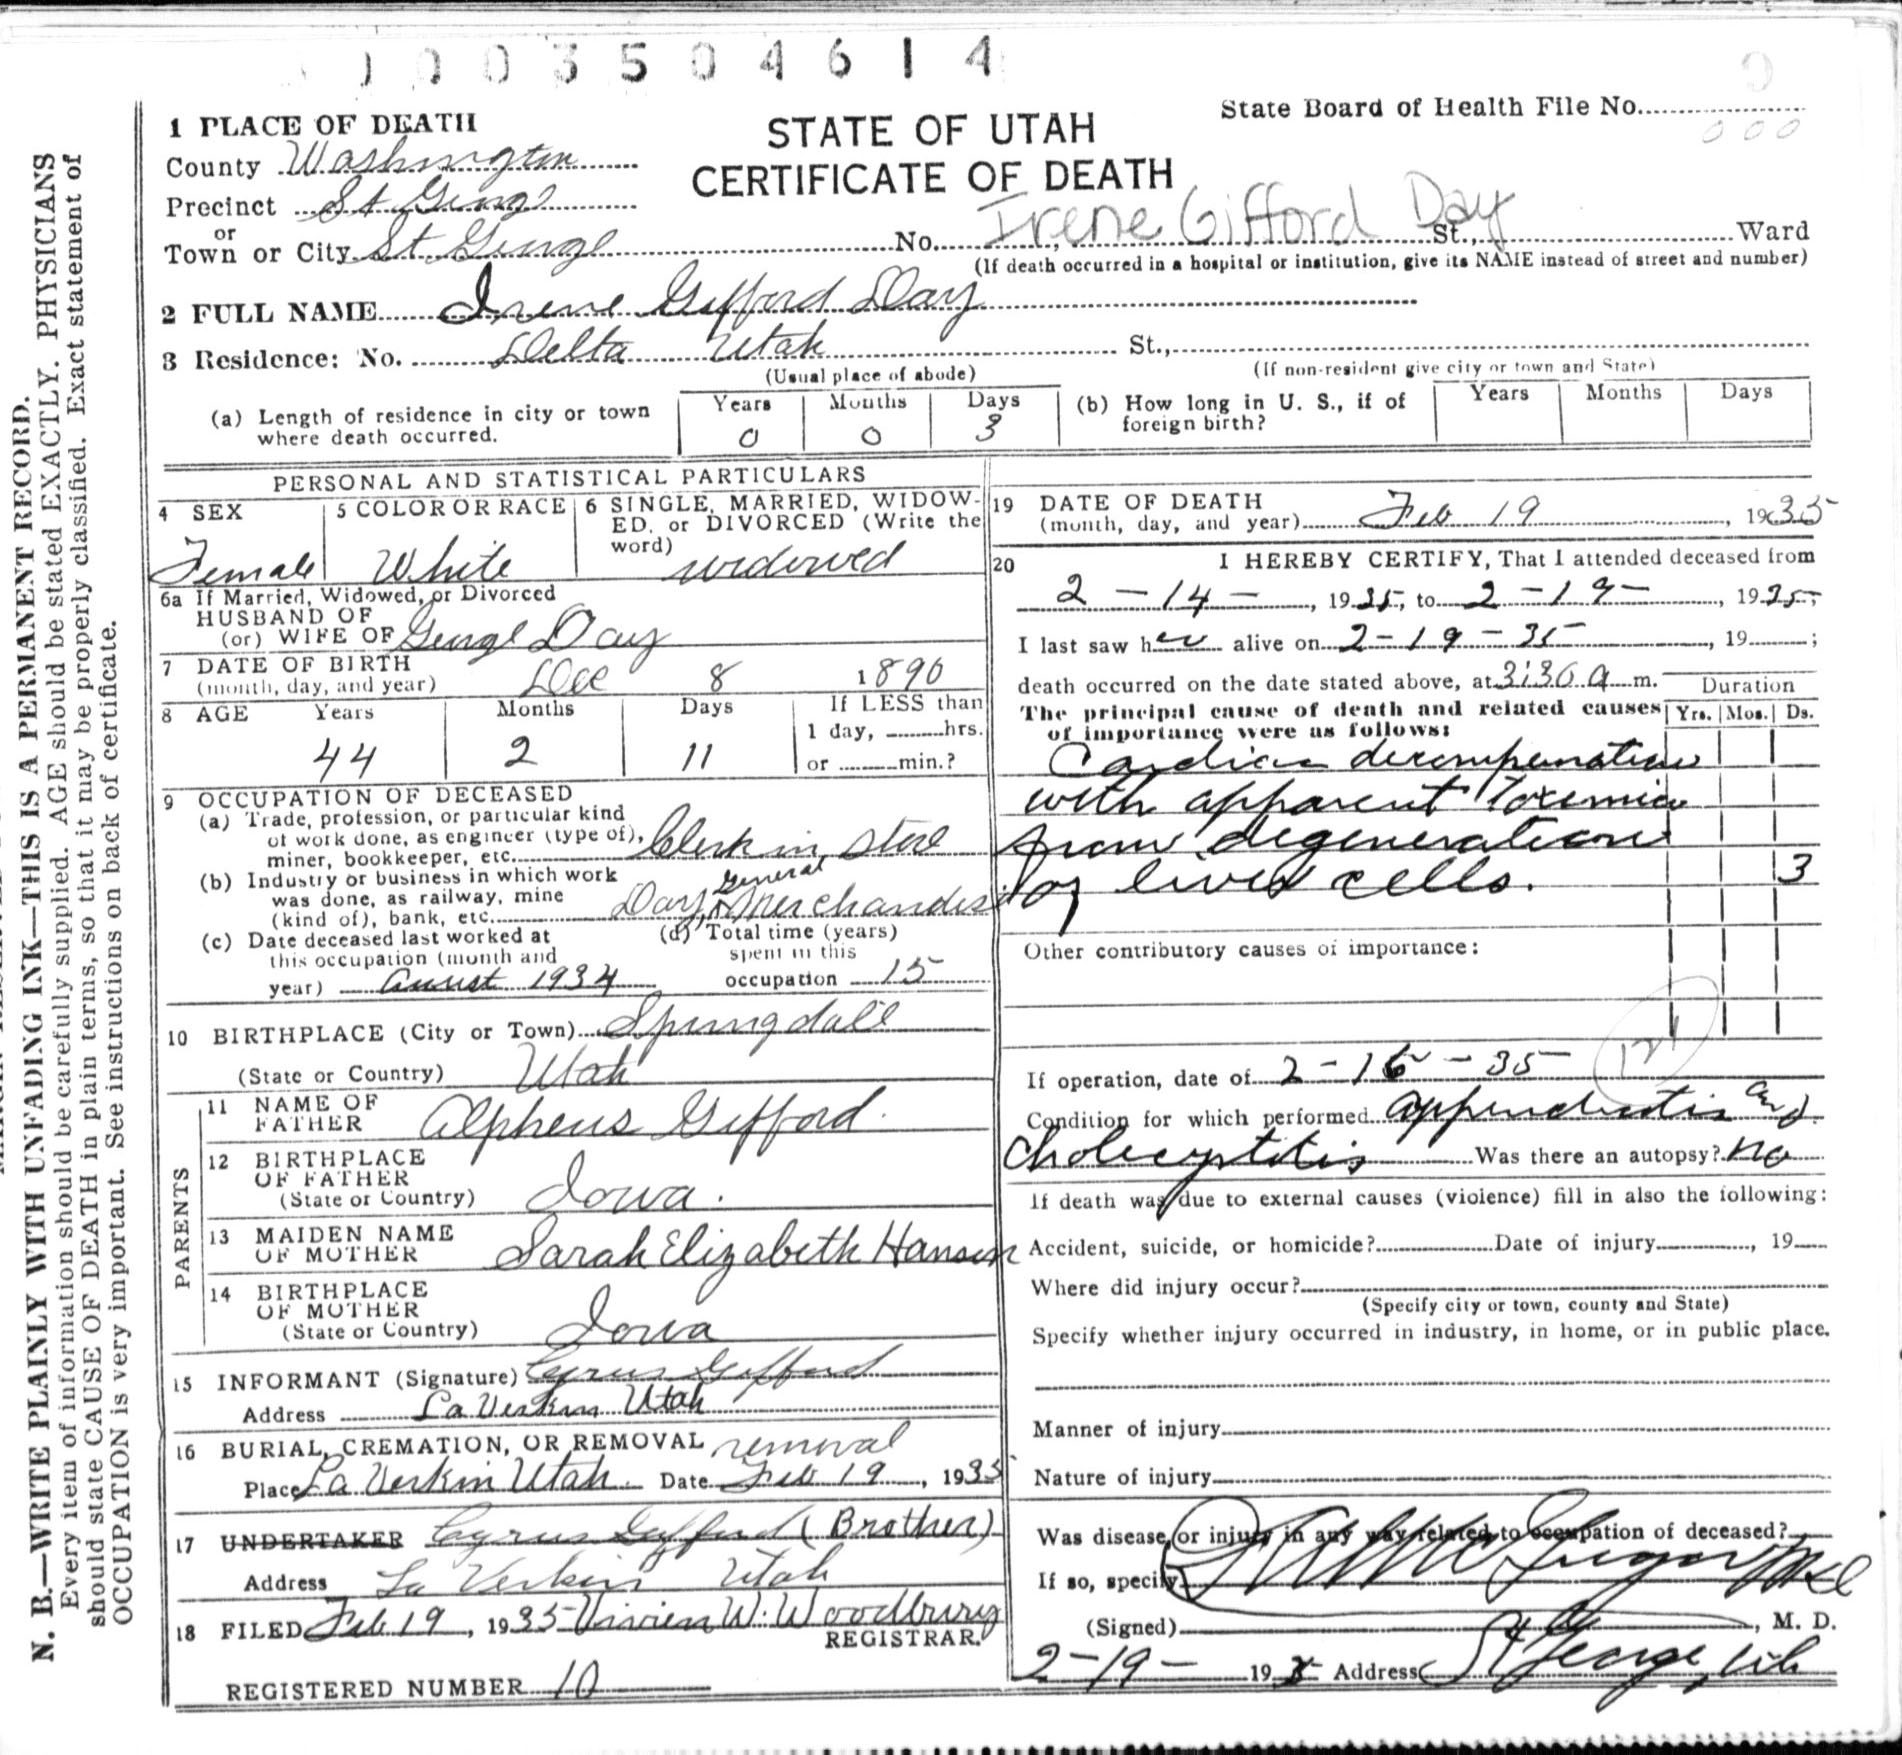 1003504614
State Board of Health File No.
000
STATE OF UTAH
CERTIFICATE OF DEATH
1 PLACE OF DEATH
County Washington
Precinct St George
or
Town or City St George No. Irene Gifford Day St., Ward
(If death occurred in a hospital or institution, give its NAME instead of street and number)
2 FULL NAME Irene Gifford Day
3 Residence: No. Delta Utah St.,
(Usual place of abode) (If non-resident give city or town and State)
(a) Length of residence in city or town where death occurred. Years 0 Months 0 Days 3
(b) How long in U. S., if of foreign birth? Years Months Days
PERSONAL AND STATISTICAL PARTICULARS
4 SEX Female
5 COLOR OR RACE White
6 SINGLE, MARRIED, WIDOWED, or DIVORCED (Write the word) widowed
6a If Married, Widowed, or Divorced
HUSBAND OF
(or) WIFE OF George Day
7 DATE OF BIRTH
(month, day, and year) Dec 8 1890
8 AGE Years 44 Months 2 Days 11 If LESS than
1 day, hrs.
or min.?
9 OCCUPATION OF DECEASED
(a) Trade, profession, or particular kind
of work done, as engineer (type of),
miner, bookkeeper, etc. Clerk in Store
(b) Industry or business in which work
was done, as railway, mine
(kind of), bank, etc. Day, General Merchandise
(c) Date deceased last worked at
this occupation (month and
year) August 1934
(d) Total time (years)
spent in this
occupation 15
10 BIRTHPLACE (City or Town) Springdale
(State or Country) Utah
PARENTS
11 NAME OF
FATHER Alpheus Gifford
12 BIRTHPLACE
OF FATHER
(State or Country) Iowa.
13 MAIDEN NAME
OF MOTHER Sarah Elizabeth Hansen
14 BIRTHPLACE
OF MOTHER
(State or Country) Iowa
15 INFORMANT (Signature) Cyrus Gifford
Address La Verkin Utah
16 BURIAL, CREMATION, OR REMOVAL removal
Place La Verkin Utah. Date Feb 19, 1935
17 UNDERTAKER Cyrus Gifford (Brother)
Address La Verkin Utah
18 FILED Feb 19, 1935 Vivien W. Woodbury
REGISTRAR.
REGISTERED NUMBER 10
19 DATE OF DEATH
(month, day, and year) Feb 19, 1935
20 I HEREBY CERTIFY, That I attended deceased from
2-14-, 1935, to 2-19-, 1935,
I last saw her alive on 2-19-35, 19 ;
death occurred on the date stated above, at 3:30 a m.
The principal cause of death and related causes
of importance were as follows:
Duration
Yrs. Mos. Ds.
Cardiac decompensation
with apparent Toxemia
from degeneration
of liver cells. 3
Other contributory causes of importance:
If operation, date of 2-16-35
Condition for which performed appendicitis and
Cholecystitis Was there an autopsy? no
If death was due to external causes (violence) fill in also the following:
Accident, suicide, or homicide? Date of injury , 19
Where did injury occur?
(Specify city or town, county and State)
Specify whether injury occurred in industry, in home, or in public place.
Manner of injury
Nature of injury
Was disease or injury in any way related to occupation of deceased?
If so, specify
(Signed) , M. D.
2-19- 193 Address St George, Ut
N. B.—WRITE PLAINLY WITH UNFADING INK—THIS IS A PERMANENT RECORD.
Every item of information should be carefully supplied. AGE should be stated EXACTLY. PHYSICIANS
should state CAUSE OF DEATH in plain terms, so that it may be properly classified. Exact statement of
OCCUPATION is very important. See instructions on back of certificate.